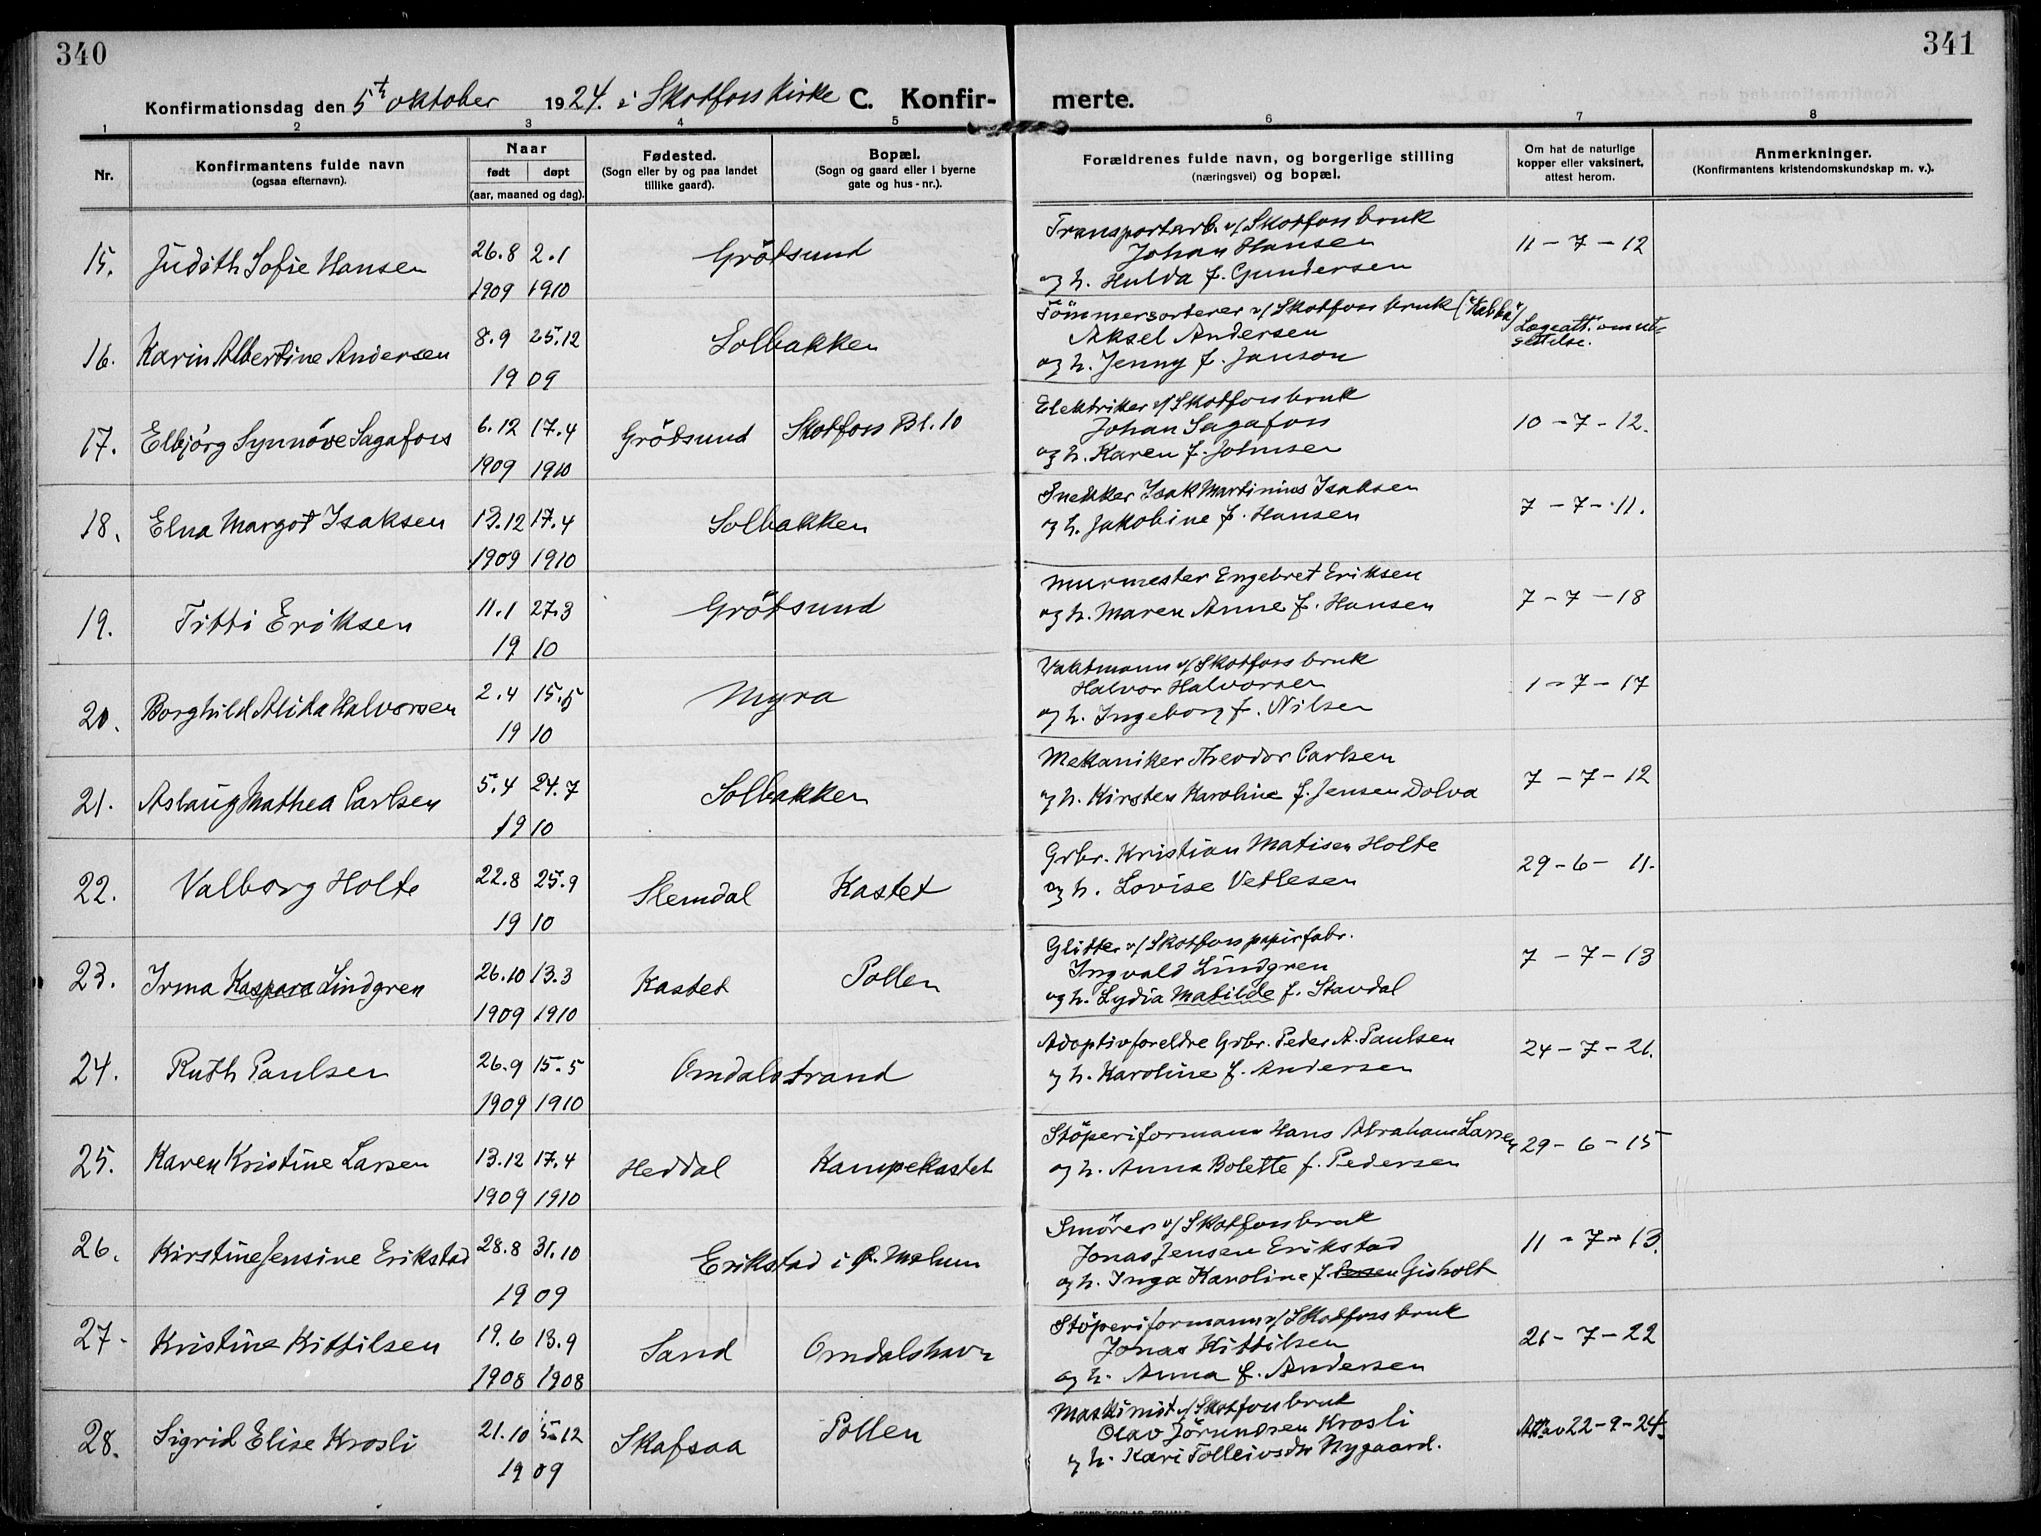 340
341
Konfirmationsdag den 5te oktober 1924. i Skotfoss Kirke C. Konfir-
merte.
1 2 3 4 5 6 7 8
Nr.
Konfirmantens fulde navn
(ogsaa efternavn).
Naar
født døpt
(aar, maaned og dag).
Fødested.
(Sogn eller by og paa landet
tillike gaard).
Bopæl.
(Sogn og gaard eller i byerne
gate og hus-nr.).
Forældrenes fulde navn, og borgerlige stilling
(næringsvei) og bopæl.
Om hat de naturlige
kopper eller vaksinert,
attest herom.
Anmerkninger.
(Konfirmantens kristendomskundskap m. v.).
15. Judith Sofie Hansen 26.8 2.1 Grötsund
1909 1910
Transportarb. v/ Skotfoss bruk
Johan Hansen
og h. Hulda f. Gundersen
11-7-12
16. Karin Albertine Andersen 8.9 25.12 Solbakken
1909
Tömmersorterer v/ Skotfoss bruk
Aksel Andersen
og h. Jenny f. Janson
Lægeatt. om ut-
settelse.
17. Elbjörg Synnöve Sagafoss 6.12 17.4 Grötsund Skotfoss Bl. 10
1909 1910
Elektriker v/ Skotfoss bruk
Johan Sagafoss
og h. Karen f. Johnsen
10-7-12.
18. Elna Margot Isaksen 13.12 17.4 Solbakken
1909 1910
Snekker Isak Martinius Isaksen
og h. Jakobine f. Hansen
7-7-11.
19. Titti Eriksen 11.1 27.3 Grötsund
1910
Murmester Engebret Eriksen
og h. Maren Anne f. Hansen
7-7-18
20. Borghild Alida Halvorsen 2.4 15.5 Myra
1910
Vaktmann v/ Skotfoss bruk
Halvor Halvorsen
og h. Ingeborg f. Nilsen
1-7-17
21. Aslaug Mathea Carlsen 5.4 24.7 Solbakken
1910
Mekaniker Theodor Carlsen
og h. Kirsten Karoline f. Jensen Dolva
7-7-12
22. Valborg Holte 22.8 25.9 Slemdal Kastet
1910
Grbr. Kristian Matisen Holte
og h. Lovise Vetlesen
29-6-11.
23. Irma Kaspara Lindgren 26.10 13.3 Kastet Pollen
1909 1910
Glitter v/ Skotfoss papirfabr.
Ingvald Lindgren
og h. Lydia Matilde f. Stavdal
7-7-13
24. Ruth Paulsen 26.9 15.5 Omdalstrand
1909 1910
Adoptivforeldre Grbr. Peder A. Paulsen
og h. Karoline f. Andersen
24-7-21.
25. Karen Kristine Larsen 13.12 17.4 Heddal Kampekastet
1909 1910
Stöperiformann Hans Abraham Larsen
og h. Anna Bolette f. Pedersen
29-6-15
26. Kirstine Jensine Erikstad 28.8 31.10 Erikstad i Melum
1909
Smörer v/ Skotfoss bruk
Jonas Jensen Erikstad
og h. Inga Karoline f. Gisholt
11-7-13.
27. Kristine Kittilsen 19.6 13.9 Sand Omdalshavn
1908 1908
Stöperiformann v/ Skotfoss bruk
Jonas Kittilsen
og h. Anna f. Andersen
21-7-22
28. Sigrid Elise Krosli 21.10 5.12 Skafsaa Pollen
1909
Maskinist v/ Skotfoss bruk
Olav Jörundsen Krosli
og h. Kari Tolleivsdtr Nygaard.
Att. av 22-9-24.